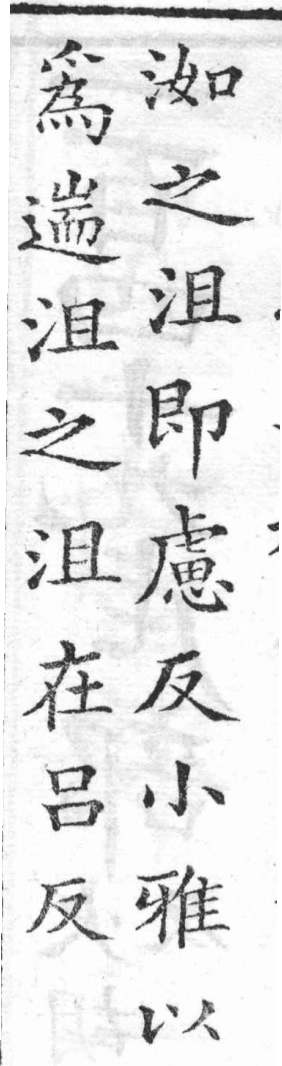 洳之沮即慮反小雅以
爲遄沮之沮在吕反